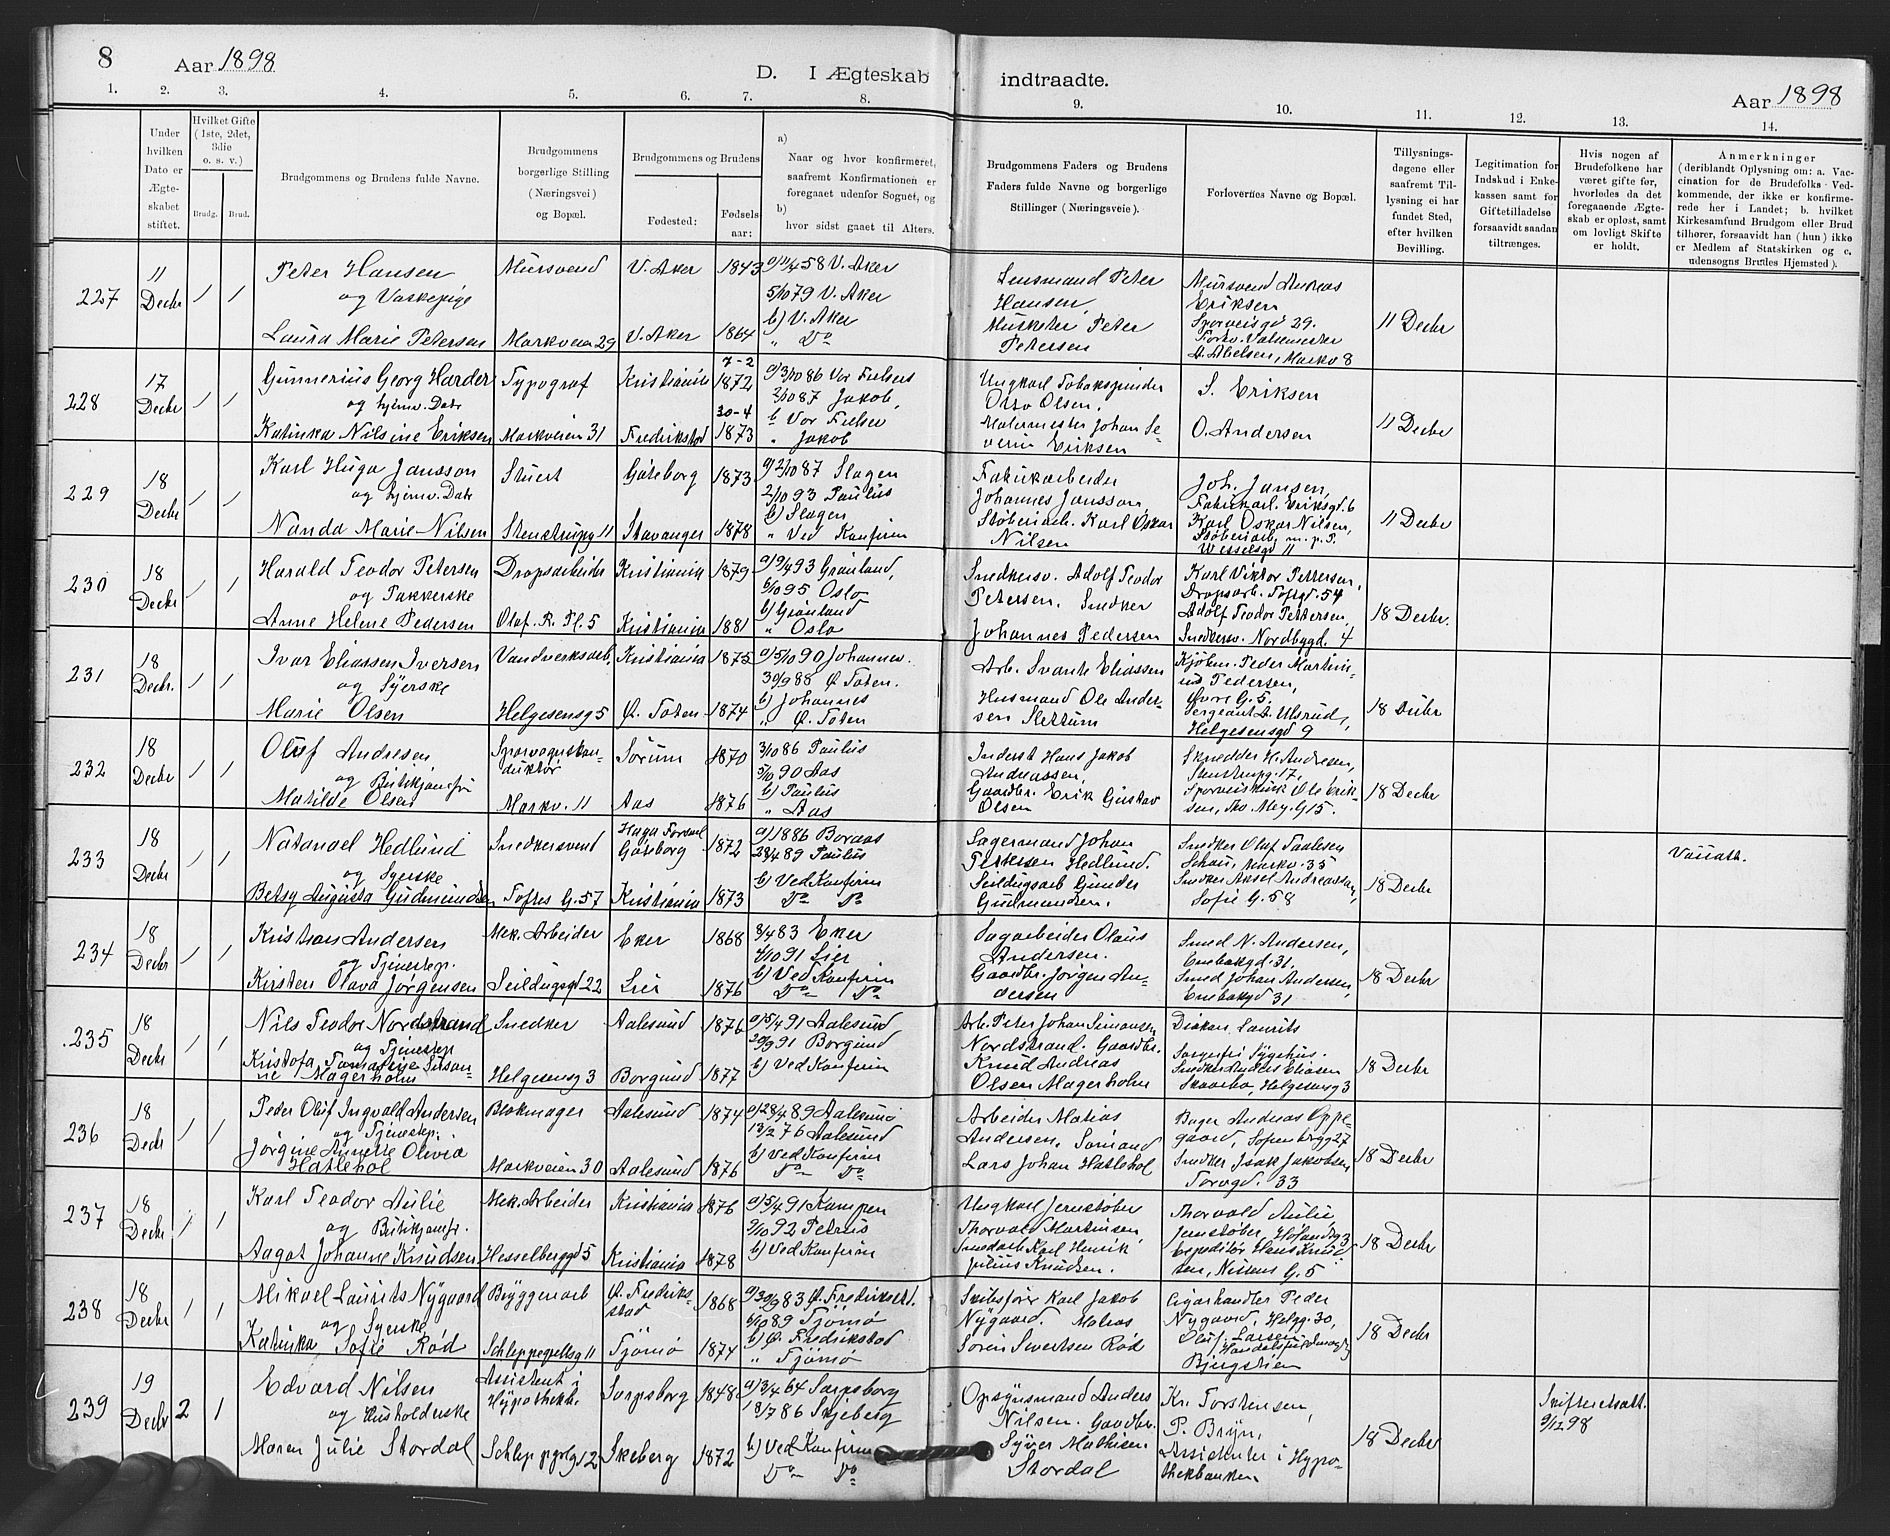 8
Aar 1898
D. I Ægteskab
indtraadte.
Aar 1898
1. 2. 3. 4. 5. 6. 7. 8. 9. 10. 11. 12. 13. 14.
Under hvilken Dato er Ægteskabet stiftet.
Hvilket Gifte (1ste, 2det, 3die o. s. v.)
Brudg. Brud.
Brudgommens og Brudens fulde Navne.
Brudgommens borgerlige Stilling (Næringsvei) og Bopæl.
Brudgommens og Brudens
Fødested: Fødselsaar:
a) Naar og hvor konfirmeret, saafremt Konfirmationen er foregaaet udenfor Sognet, og
b) hvor sidst gaaet til Alters.
Brudgommens Faders og Brudens Faders fulde Navne og borgerlige Stillinger (Næringsveie).
Forlovernes Navne og Bopæl.
Tillysningsdagene eller saafremt Tillysning ei har fundet Sted, efter hvilken Bevilling.
Legitimation for Indskud i Enkekassen samt for Giftetilladelse forsaavidt saadan tiltrænges.
Hvis nogen af Brudefolkene har været gifte før, hvorledes da det foregaaende Ægteskab er opløst, samt om lovligt Skifte er holdt.
Anmerkninger (deriblandt Oplysning om: a. Vaccination for de Brudefolks Vedkommende, der ikke er konfirmerede her i Landet; b. hvilket Kirkesamfund Brudgom eller Brud tilhører, forsaavidt han (hun) ikke er Medlem af Statskirken og c. udensogns Brudes Hjemsted).
227 11 Decbr 1 1 Peter Hansen Mursvend V. Aker 1843 a) 11/4 58 V. Aker Lensmand Peter Hansen, Mursvend Andreas Eriksen 11 Decbr
og Vaskepige 5/10 79 V. Aker
Laura Marie Petersen Markveien 29 V. Aker 1864 b) V. Aker " Do Musketer Peter Petersen Sporveisgd 29. A. Abelsen, Markv 8
228 17 Decbr 1 1 Gunnerius Georg Harder Typograf Kristiania 7-2 1872 a) 3/10 86 Vor Frelsers Ungkarl Tobakspinder Otto Olsen. S. Eriksen 11 Decbr
og hjemv. Datr 2/10 87 Jakob,
Katinka Nilsine Eriksen Markveien 31 Fredrikstad 30-4 1873 b Vor Frelser " Jakob Malermester Johan Severin Eriksen O. Andersen
229 18 Decbr 1 1 Karl Hugo Jansson Stuert Göteborg 1873 a) 2/10 87 Slagen Fabrikarbeider Johannes Jansson, Joh. Jansen, Fabrikarb. Eriksgd. 6 11 Decbr
og hjemv. Datr 2/10 93 Paulus
Nanda Marie Nilsen Stenstrupg 11 Stavanger 1878 b) Slagen " Ved Konfirm Støberiarb. Karl Oskar Nilsen Karl Oskar Nilsen, Støberiarb, m. p. T. Wesselsgd 11
230 18 Decbr 1 1 Harald Teodor Petersen Dropsarbeider Kristiania 1879 a) 9/4 93 Grønland, Snedkersv. Adolf Teodor Petersen. Karl Viktor Pettersen, Dropsarb. Toftgd. 54 18 Decbr.
og Pakkerske 6/10 95 Oslo
Anne Helene Pedersen Olaf. R. Pl. 5 Kristiania 1881 b) Grønland " Oslo Snedker Johannes Pedersen Adolf Teodor Pettersen, Snedkersv. Nordbygd. 4
231 18 Decbr. 1 1 Ivar Eliassen Iversen Vandverksarb. Kristiania 1875 a) 5/10 90 Johannes. Arb. Svante Eliassen Kjøkm. Peder Martinius Pedersen, Øvre G. 5. 18 Decbr
og Syerske 30/9 88 Ø. Toten.
Marie Olsen Helgesensg 5 Ø. Toten 1874 b) Johannes " Ø. Toten Husmand Ole Andersen Slettum Sergeant A. Ulsrud, Helgesensgd 9
232 18 Decbr 1 1 Oluf Andresen Sporvognskonduktør Sørum 1870 3/10 86 Paulus Inderst Hans Jakob Andreassen, Skredder H. Andresen, Stenstrupg. 17, 18 Decbr
og Butikjomfru 5/10 90 Aas
Matilde Olsen Markv. 11 Aas 1876 b) Paulus " Aas Gaardbr. Erik Gustav Olsen Sporveisbetj. Ole Eriksen, Tho. Mey. G 15.
233 18 Decbr 1 1 Natanael Hedlund Snedkersvend Göteborg 1872 a) 1886 Boraas Sagermand Johan Pettersen Hedlund. Snedker Olaf Paulsen Schau, Markv. 35 18 Decbr Vaccatt.
og Syerske 28/4 89 Paulus
Betsy Augusta Gudmundsen Toftes G. 57 Kristiania 1873 b) Ved Konfirm Do Do Seildugsarb Gunder Gudmundsen. Snedker Aksel Andreassen, Sofie G. 58
234 18 Decbr 1 1 Kristian Andersen Mek. Arbeider Eker 1868 8/4 83 Eker Sagarbeider Olaus Andersen. Smed N. Andersen, Enebakgd. 31. 18 Decbr
og Tjenestep. 4/10 91 Lier
Kirsten Olava Jørgensen Seildugsgd 22 Lier 1876 b) Ved Konfirm Do Do Gaardbr. Jørgen Andersen Smed Johan Andersen, Enebakgd 31
235 18 Decbr 1 1 Nils Teodor Nordstrand Snedker Aalesund 1876 a) 5/4 91 Aalesund Arb. Peter Johan Simonsen Nordstrand. Diakon Laurits Sorgenfri Sygehus. 18 Decbr
og Tjenestep 20/9 91 Borgund
Magerholm Helgesensg 3 Borgund 1877 b) Ved Konfirm Gaardbr. Knud Andreas Olsen Magerholm Snedker Anders Eliasen Skaarbø, Helgesensg 3
236 18 Decbr 1 1 Peder Oluf Ingvald Andersen Blokmager Aalesund 1874 a) 28/4 89 Aalesund Arbeider Matias Andersen. Bager Andreas Oppegaard, Sofienbergg 27 18 Decbr
og Tjenestep. 13/2 76 Aalesund
Jørgine Annette Olivia Hatlehol Markveien 30 Aalesund 1876 b) Ved Konfirm Do Do Sømand Lars Johan Hatlehol Snedker Isak Jakobsen Torvgd. 33
237 18 Decbr 1 1 Karl Teodor Aulie Mek. Arbeider Kristiania 1876 a) 5/4 91 Kampen Ungkarl Jernstøber Thorvald Martinsen, Thorvald Aulie Jernstøber, 18 Decbr
og Butikjomfr. 2/10 92 Petrus
Aagot Johanne Knudsen Hesselberggd 5 Kristiania 1878 b) Ved Konfirm Smedarb Karl Henrik Julius Knudsen. Expeditør Hans Knudsen, Nilsens G. 5
238 18 Decbr 1 1 Mikael Laurits Nygaard Bryggeriarb Ø. Fredrikstad 1868 a) 30/9 83 Ø. Fredrikstd. Skibsfører Karl Jakob Nygaard. Cigarhandler Peder Nygaard, Helgg. 30, 18 Decbr
og Syerske 6/10 89 Tjømø
Katinka Sofie Rød Schleppegrellsg 11 Tjømø 1874 b) Ø. Fredrikstad " Tjømø Matros Søren Sivertsen Rød Oluf Larsen Bjergstien
239 19 Decbr 2 1 Edvard Nilsen Assistent i Hypothekb. Sarpsborg 1848 a) 3/4 64 Sarpsborg Opsynsmand Anders Nilsen. Kr. Torstensen, 18 Decbr Skifteretsatt. 9/12 98
og Husholderske 18/7 86 Skjeberg
Maren Julie Stordal Schleppgrlg 12 Skeberg 1872 b) Ved Konfirm Do Do Gaardbr. Syver Mathisen Stordal P. Bryn, Assistenter i Hypothekbanken